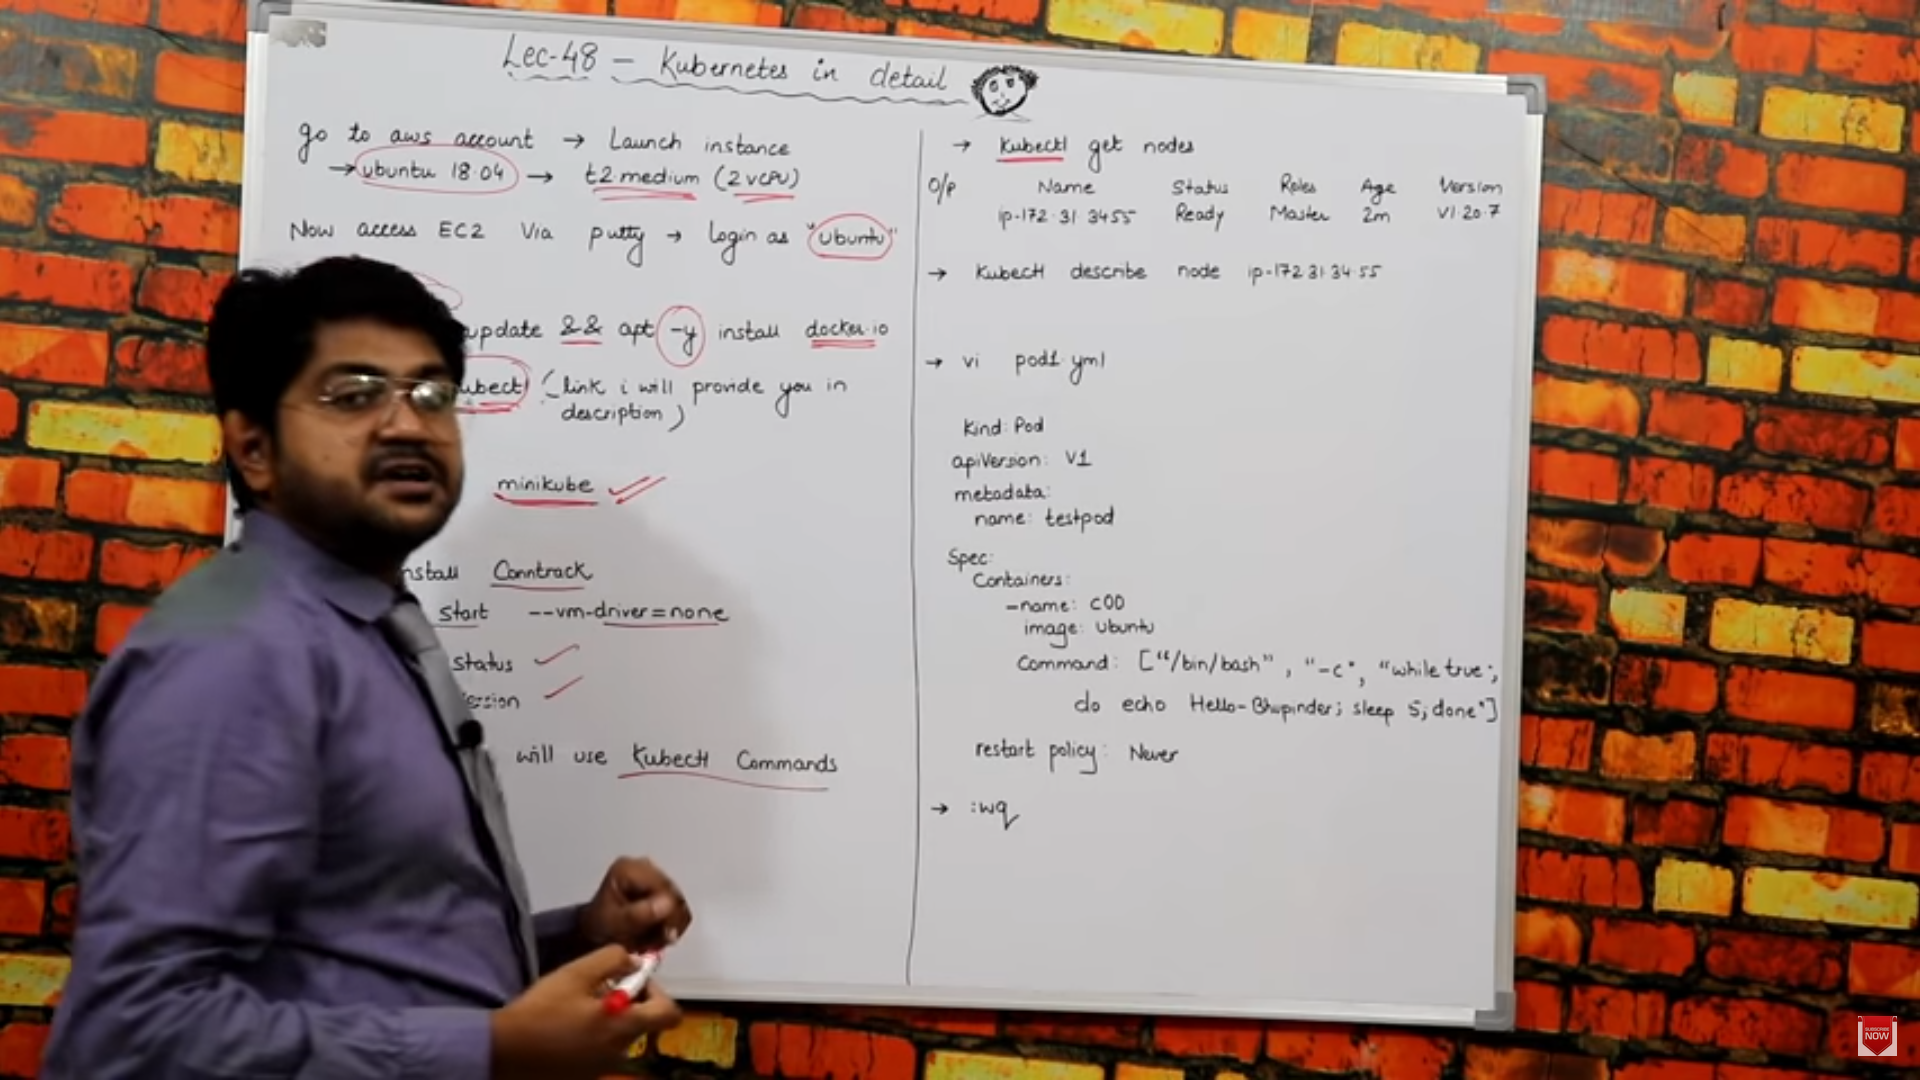 Lec-48 - Kubernetes in detail
go to aws account → Launch instance
→ ubuntu 18.04 → t2.medium (2 vCPU)
Now access EC2 Via putty → login as "ubuntu"
update && apt -y install docker.io
(link i will provide you in
description)
minikube
install Conntrack
start --vm-driver=none
status
will use Kubectl Commands
→ Kubectl get nodes
O/P Name Status Roles Age Version
ip-172.31.3455 Ready Master 2m V1.20.7
→ Kubectl describe node ip-172.31.34.55
→ vi pod1.yml
Kind: Pod
apiVersion: V1
metadata:
name: testpod
Spec:
Containers:
-name: C00
image: Ubuntu
Command: ["/bin/bash", "-c", "while true;
do echo Hello-Bhupinder; sleep 5; done"]
restart policy: Never
→ :wq
SUBSCRIBE
NOW